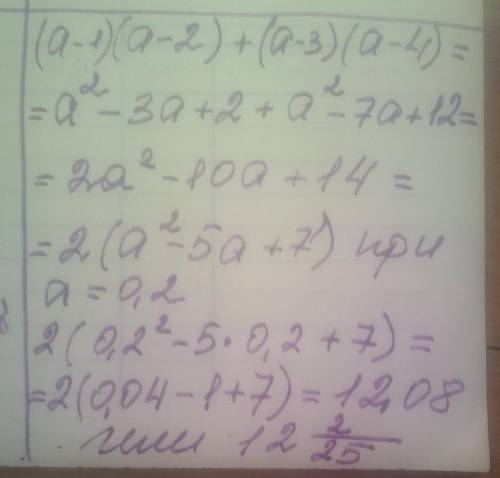 (a-1)(a-2)+(a-3)(a-4)=
=a²-3a+2+a²-7a+12=
=2a²-10a+14=
=2(a²-5a+7) при
a=0,2
2(0,2²-5·0,2+7)=
=2(0,04-1+7)=12,08
или 12 2/25